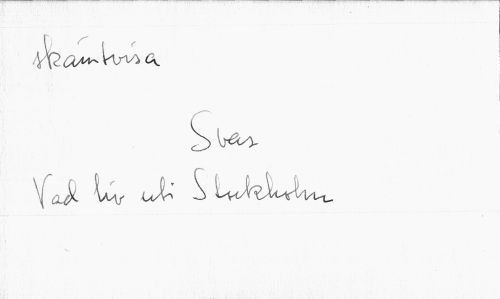 skämtvisa
Svar
Vad liv uti Stockholm